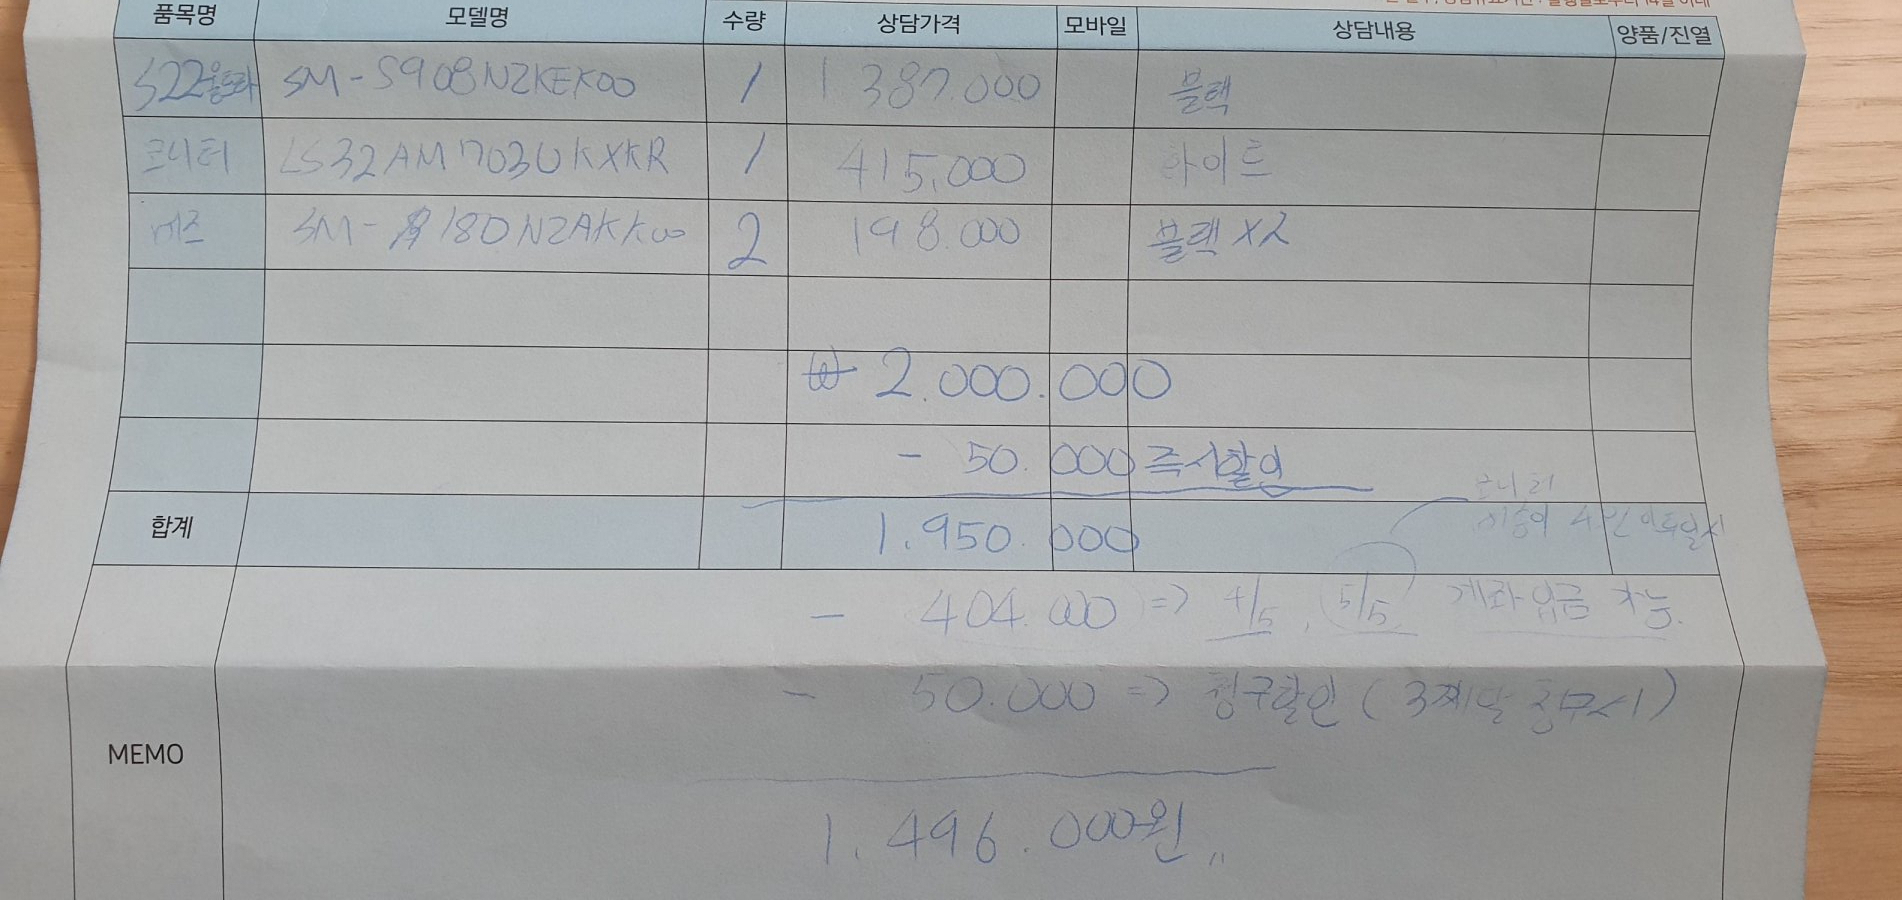 품목명 모델명 수량 상담가격 모바일 상담내용 양품/진열
S22울트라 SM-S908NZKEK00 1 1,387.000 블랙
모니터 LS32AM703UKXKR 1 415,000 화이트
버즈 SM-R180NZAKK00 2 198.000 블랙 X2
₩ 2.000.000
- 50.000 즉시할인
모니터
합계 1.950.000
- 404.000 => 4/5, 5/5 계좌입금 가능.
- 50.000 => 청구할인 (3째달 청구시)
MEMO
1.496.000원